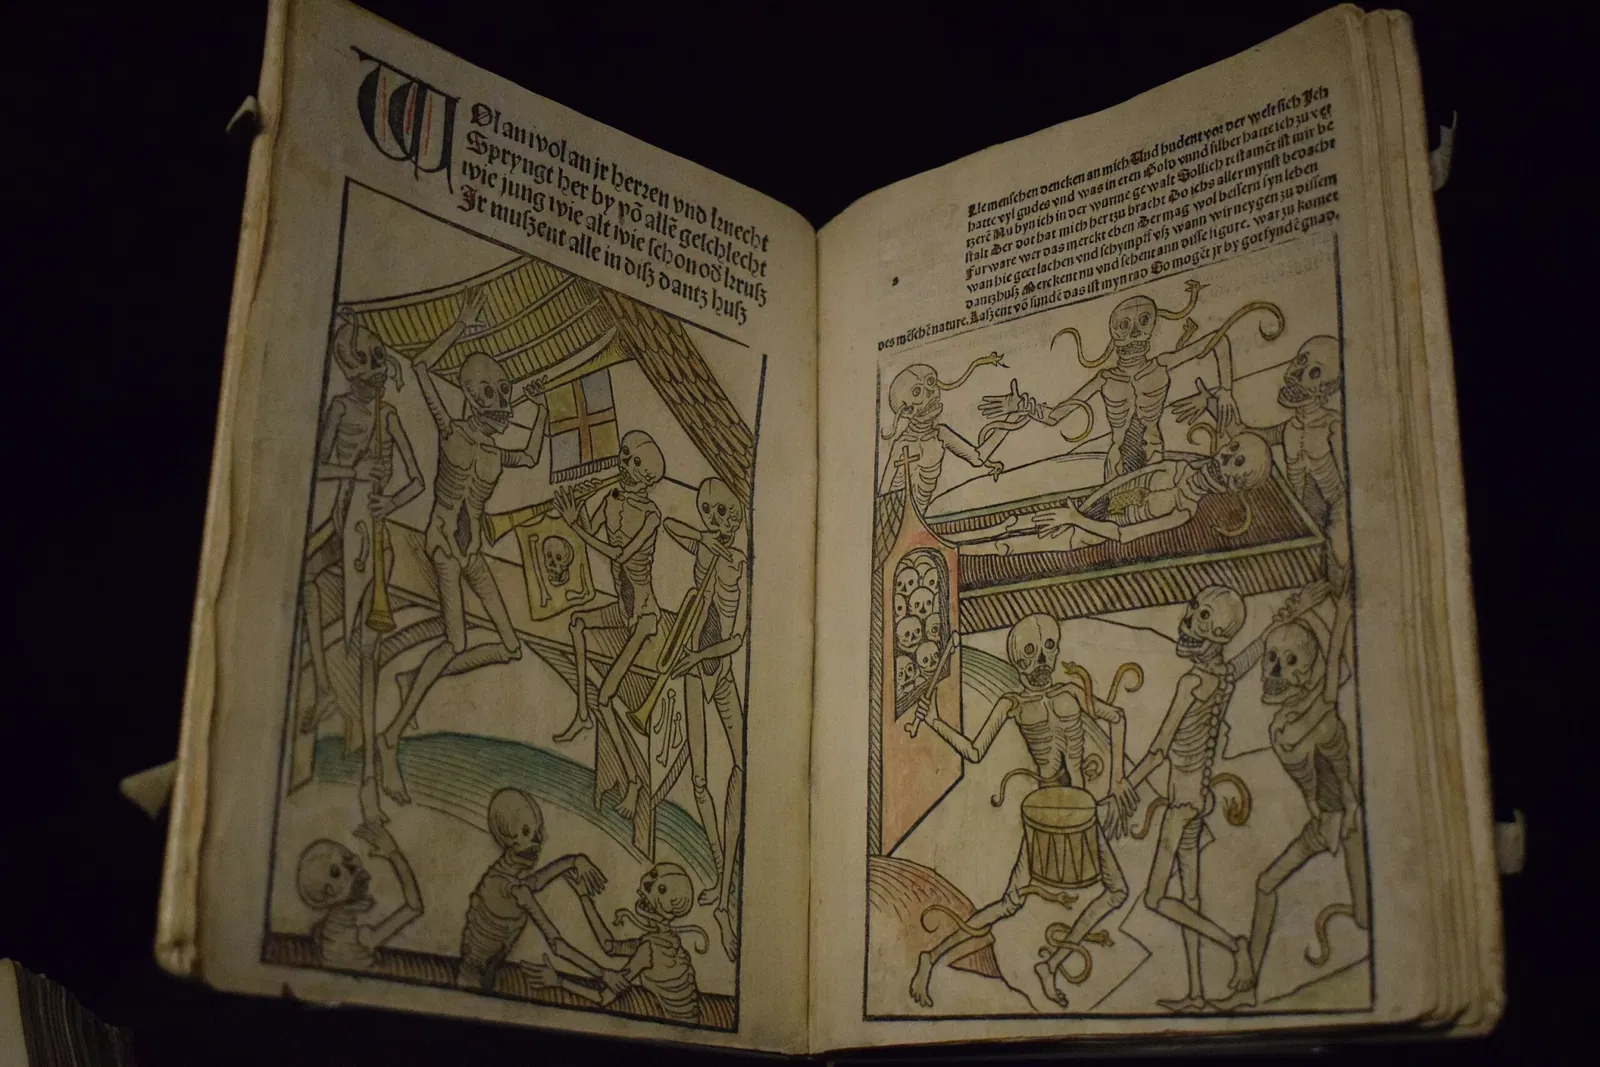 WOl an wol an jr herren vnd knecht
Spryngt her by vō allē geschlecht
wie jung wie alt wie schon od̄ kruß
Jr mußent alle in diß dantz huß
Lle menschen dencken an mich Und hudent vor der welt sich Ich
hatte vyl gudes vnd was in eren Gold vnnd silber hatte ich zu ver
zerē Nu byn ich in der wurme gewalt Sollich testamēt ist mir be
stalt Der dot hat mich hertzu bracht Do ichs aller mynst bedacht
Furware wer das merckt eben Der mag wol bessern syn leben
wan hie geet lachen vnd schympff vß wann wir neygen zu dissem
dantzhuß Merckent nu vnd sehent ann disse figure. war zu komet
des mēschē nature. Laßent vō sundē das ist myn rad So mogēt jr by got fyndē gnad.